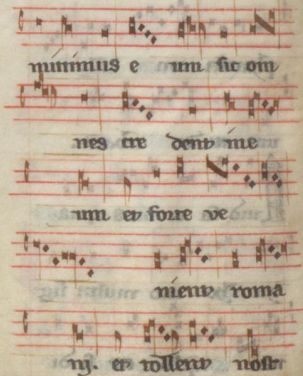 mittimus e um sic om
nes cre dent in e
um et forte ve
nient roma
ni. et tollent nostr